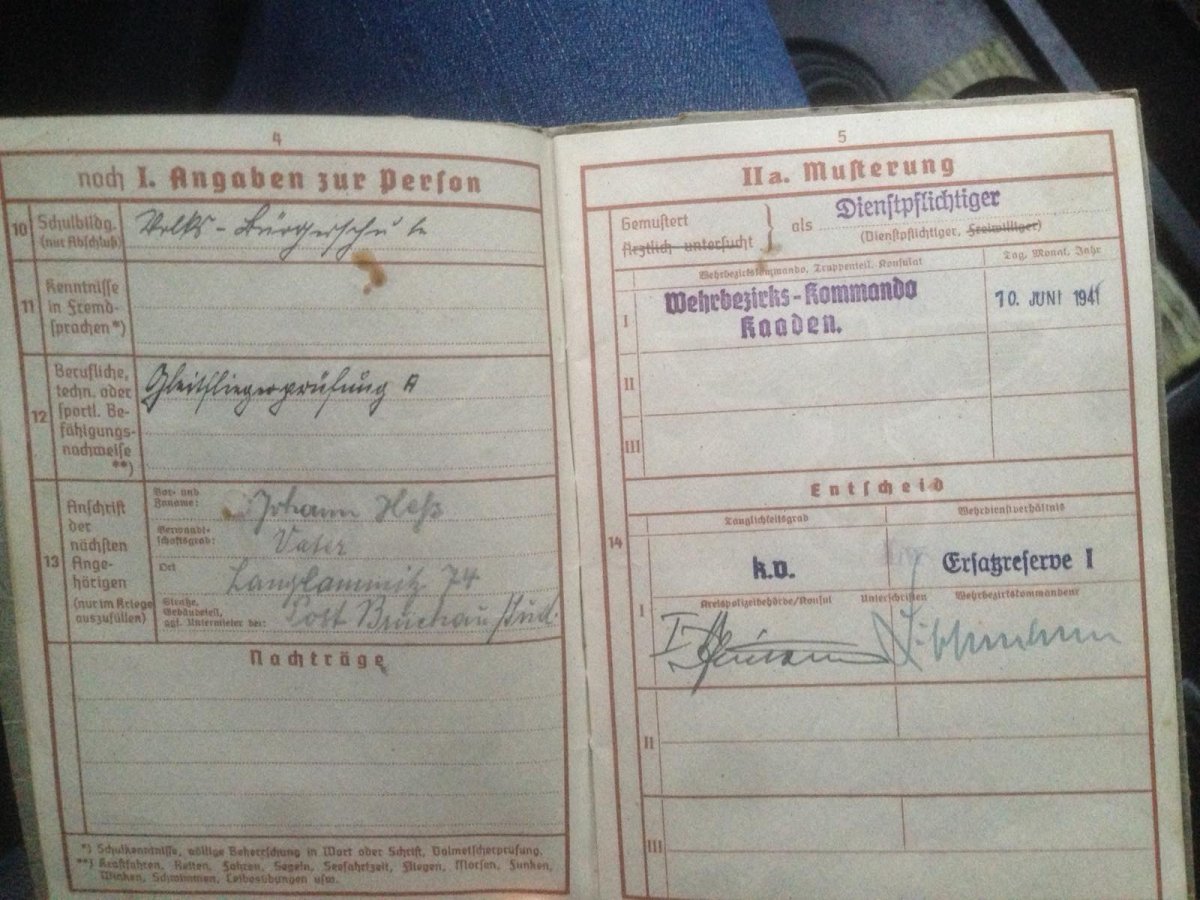 4
noch I. Angaben zur Person
10 Schulbildg. (nur Abschluß)
Volks-Bürgerschule
11 Kenntnisse in Fremdsprachen *)
12 Berufliche, techn. oder sportl. Befähigungsnachweise **)
Gleitfliegerprüfung A
13 Anschrift der nächsten Angehörigen (nur im Kriege auszufüllen)
Vor- und Zuname: Johann Heß
Verwandtschaftsgrad: Vater
Ort Langlammitz 74
Straße, Gebäudeteil, ggf. Untermieter bei: Post Bruchau
Nachträge
*) Schulkenntnisse, völlige Beherrschung in Wort oder Schrift, Dolmetscherprüfung.
**) Kraftfahren, Reiten, Fahren, Segeln, Seefahrtzeit, Fliegen, Morsen, Funken,
Winken, Schwimmen, Leibesübungen usw.
5
IIa. Musterung
Gemustert
Ärztlich untersucht
als Dienstpflichtiger
(Dienstpflichtiger, Freiwilliger)
Wehrbezirkskommando, Truppenteil, Konsulat
Tag, Monat, Jahr
I Wehrbezirks-Kommando
Kaaden.
10. JUNI 1941
II
III
Entscheid
14
Tauglichkeitsgrad
Wehrdienstverhältnis
k.v.
Ersatzreserve I
I
Kreispolizeibehörde/Konsul
Unterschriften
Wehrbezirkskommandeur
II
III